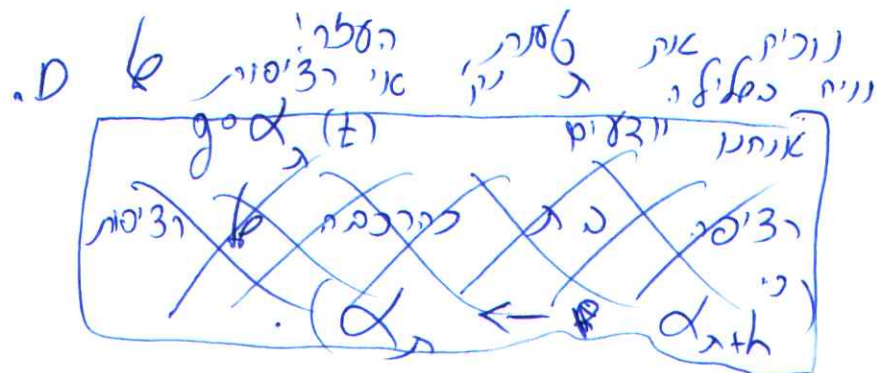 נוכיח את טענת העזר:
נניח בשלילה. ת נק' אי רציפות של D.
אנחנו יודעים g∘α_ת(t)
רציפה ב ת כהרכבה של רציפות
(כי α_{ת+h} ← α_ת).